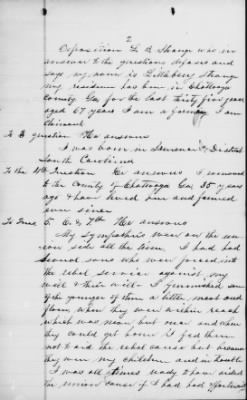 2
Deposition L B Strange was in
answer to the questions deposes and
says my name is Littleberry Strange
my residence has been in Chattooga
County Ga for the last thirty five years
aged 67 years I am a farmer I am
Claimant
To 3 question He answers
I was born in Laurens District
South Carolina
To the 4th Question He answers I removed
to the County of Chattooga Ga 35 years
ago & have lived here and farmed
ever since
To Ques 5. 6. & 7th He answers
My sympathies were on the un
ion side all the time I had
several sons who were forced into
the rebel service against my
will & their will I furnished some
of the younger of them a little meat and
flour when they were within reach
which was near, but once and when
they could get home I fed them
not to aid the rebel cause but because
they were my children and in trouble
I was all times ready to have aided
the union cause if I had had opportunity